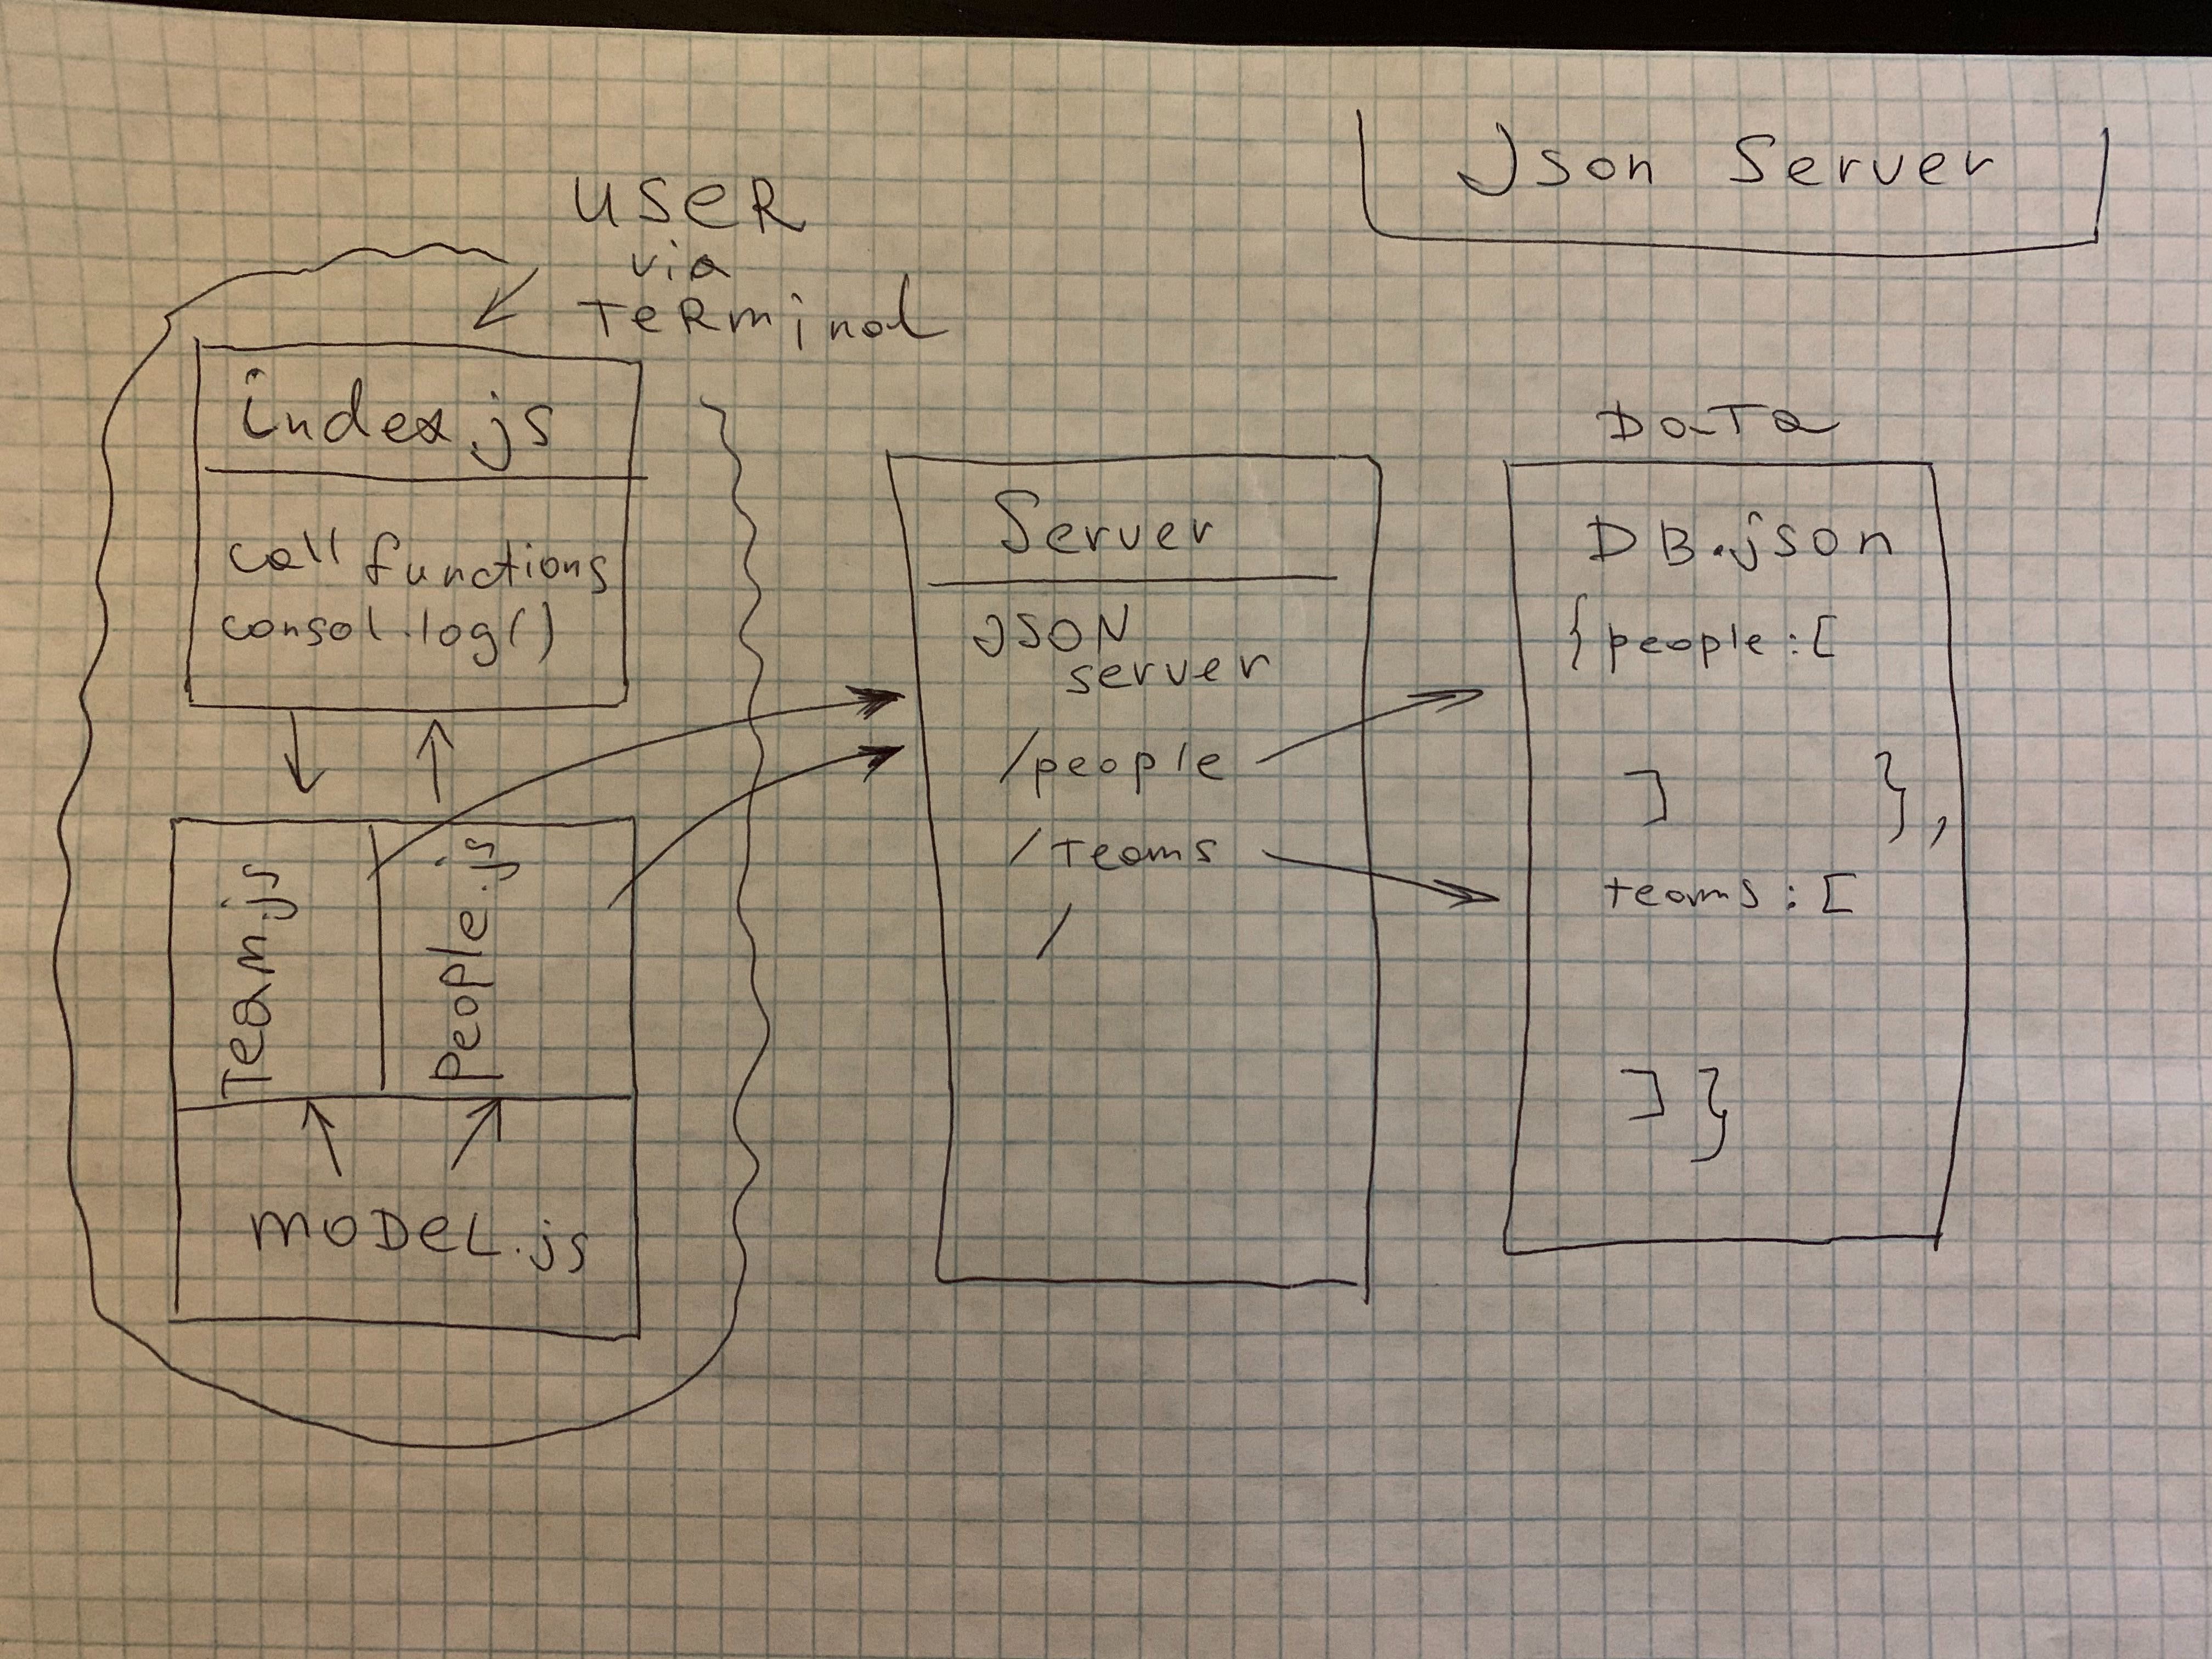 Json Server
USER
via
TERminal
index.js
call functions
consol.log()
Team.js
People.js
MODEL.js
Server
JSON
server
/people
/teams
/
DATA
DB.json
{people:[
] },
teams:[
]}